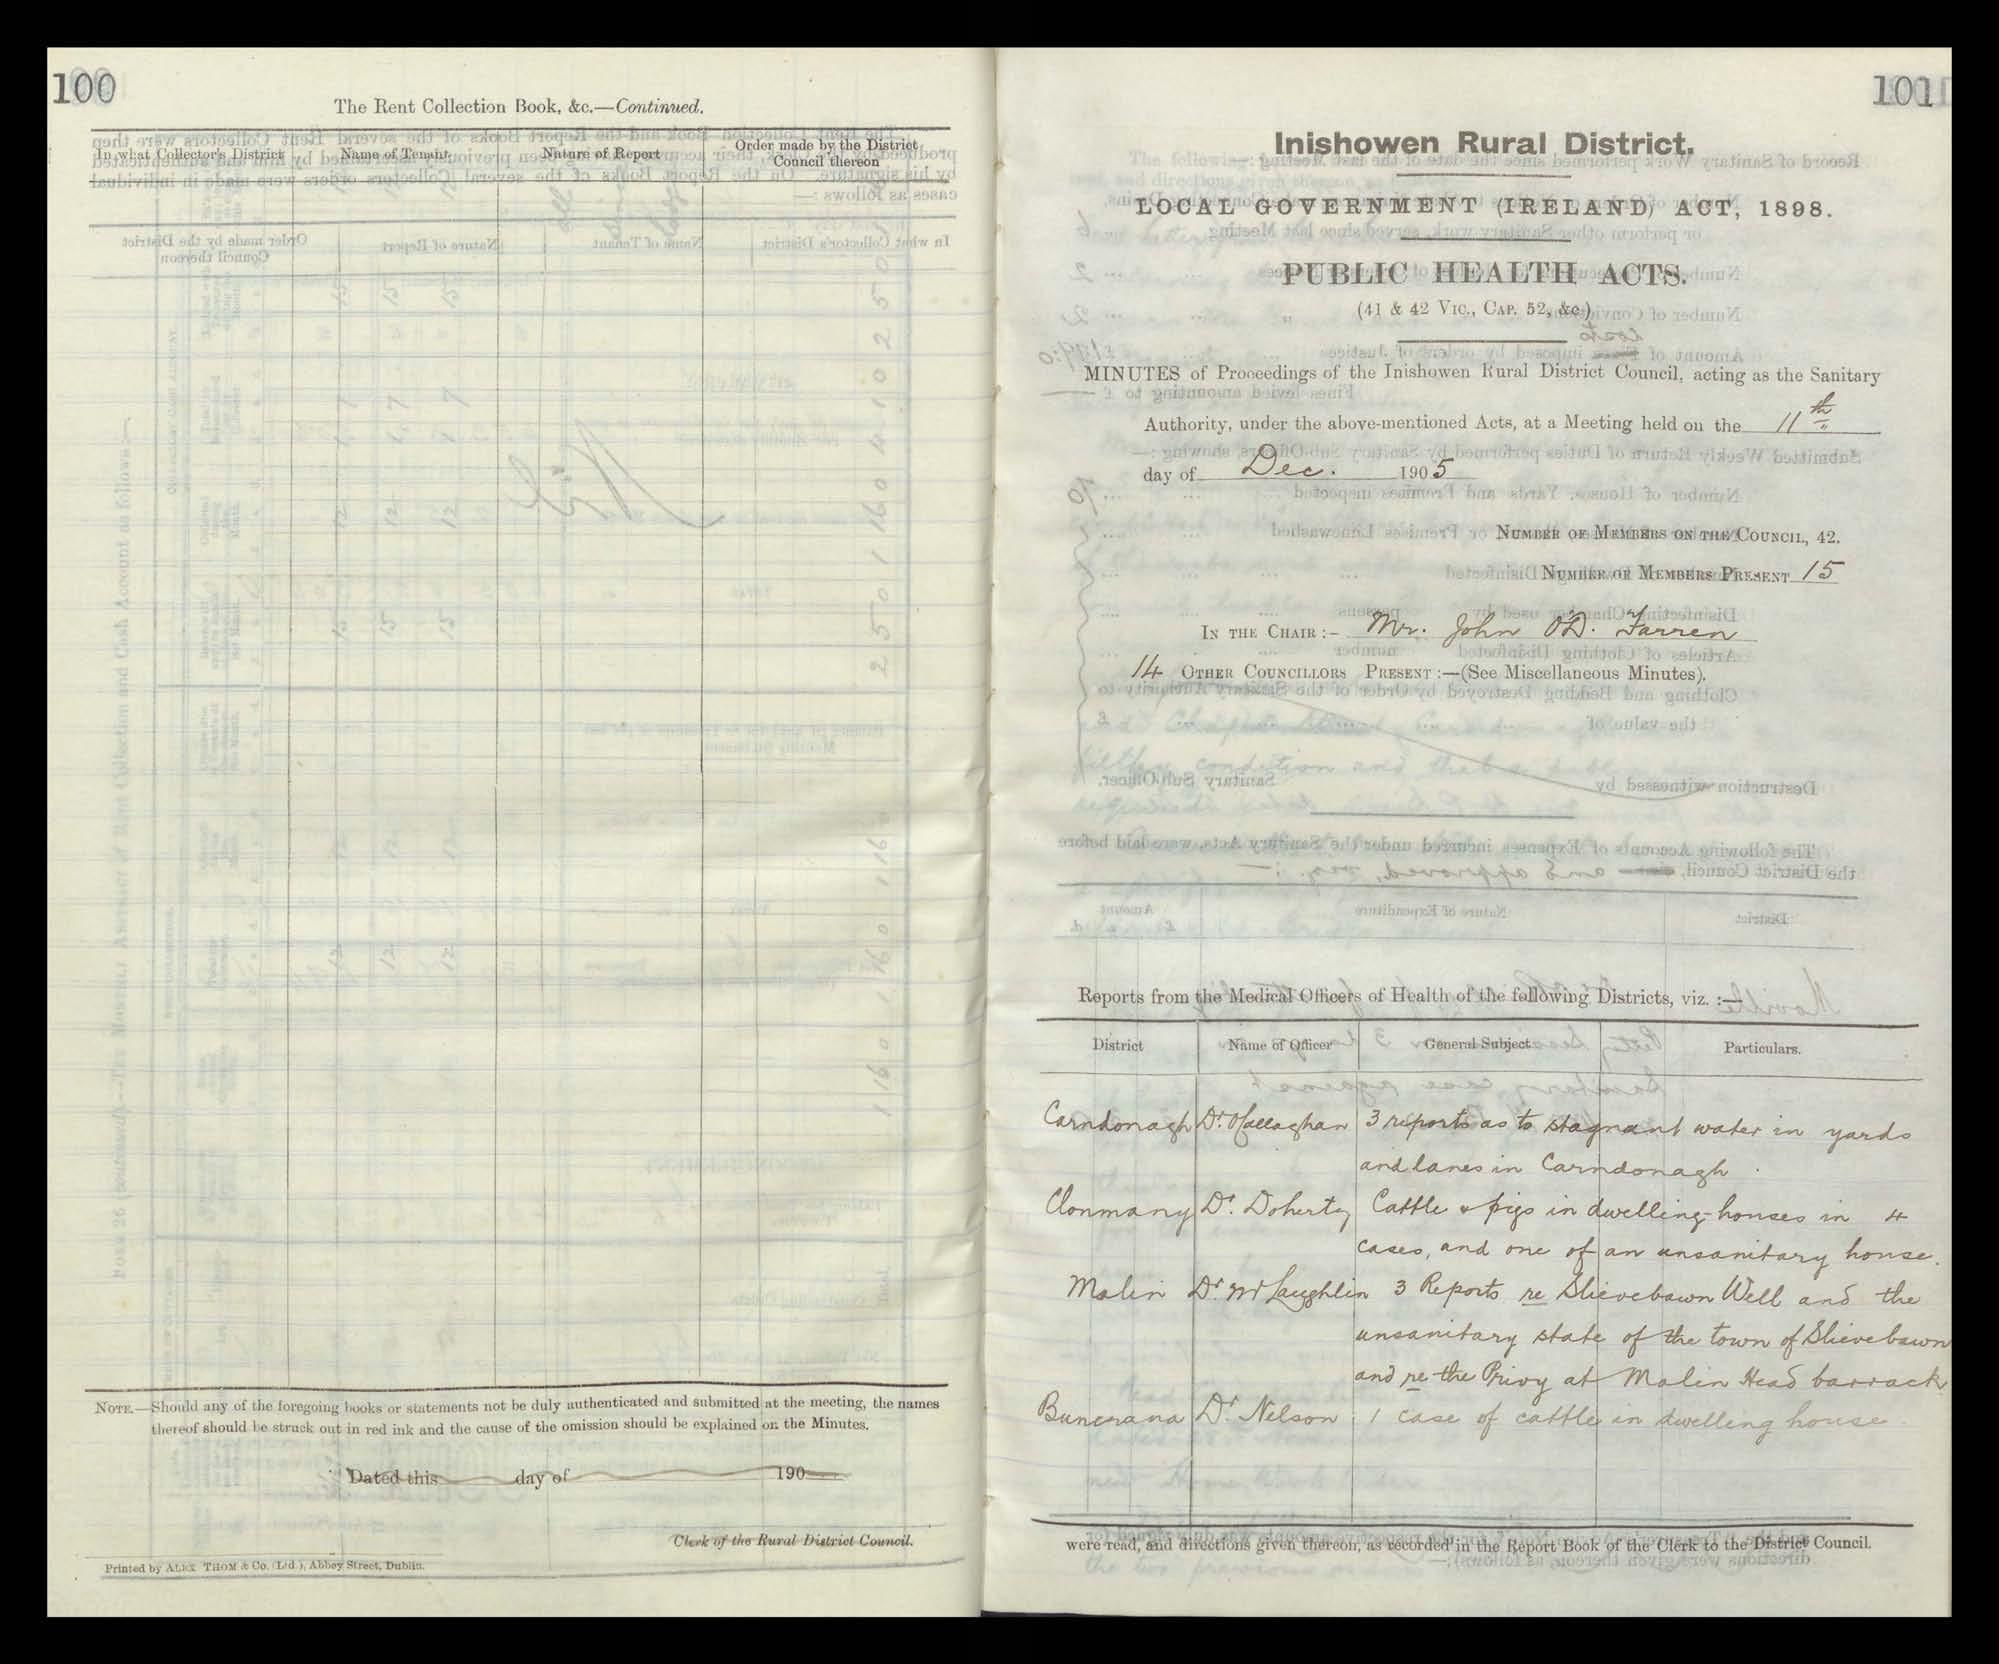 100
The Rent Collection Book, &c.—Continued.
In what Collector's District
Name of Tenant
Nature of Report
Order made by the District
Council thereon
Nil
NOTE.—Should any of the foregoing books or statements not be duly authenticated and submitted at the meeting, the names
thereof should be struck out in red ink and the cause of the omission should be explained on the Minutes.
Dated this day of 190
Clerk of the Rural District Council.
Printed by ALEX THOM & Co. (Ltd.), Abbey Street, Dublin.
101
Inishowen Rural District.
LOCAL GOVERNMENT (IRELAND) ACT, 1898.
PUBLIC HEALTH ACTS.
(41 & 42 VIC., CAP. 52, &c)
MINUTES of Proceedings of the Inishowen Rural District Council, acting as the Sanitary
Authority, under the above-mentioned Acts, at a Meeting held on the 11th
day of Dec. 1905
NUMBER OF MEMBERS ON THE COUNCIL, 42.
NUMBER OF MEMBERS PRESENT 15
IN THE CHAIR :- Mr. John O'D. Farren
14 OTHER COUNCILLORS PRESENT :—(See Miscellaneous Minutes).
Reports from the Medical Officers of Health of the following Districts, viz. :—
District
Name of Officer
General Subject
Particulars.
Carndonagh Dr. O'Callaghan 3 reports as to stagnant water in yards
and lanes in Carndonagh.
Clonmany Dr. Doherty Cattle & pigs in dwelling-houses in 4
cases, and one of an unsanitary house.
Malin Dr. McLaughlin 3 Reports re Slievebawn Well and the
unsanitary state of the town of Slievebawn
and re the Privy at Malin Head barrack
Buncrana Dr. Nelson 1 case of cattle in dwelling house.
were read, and directions given thereon, as recorded in the Report Book of the Clerk to the District Council.